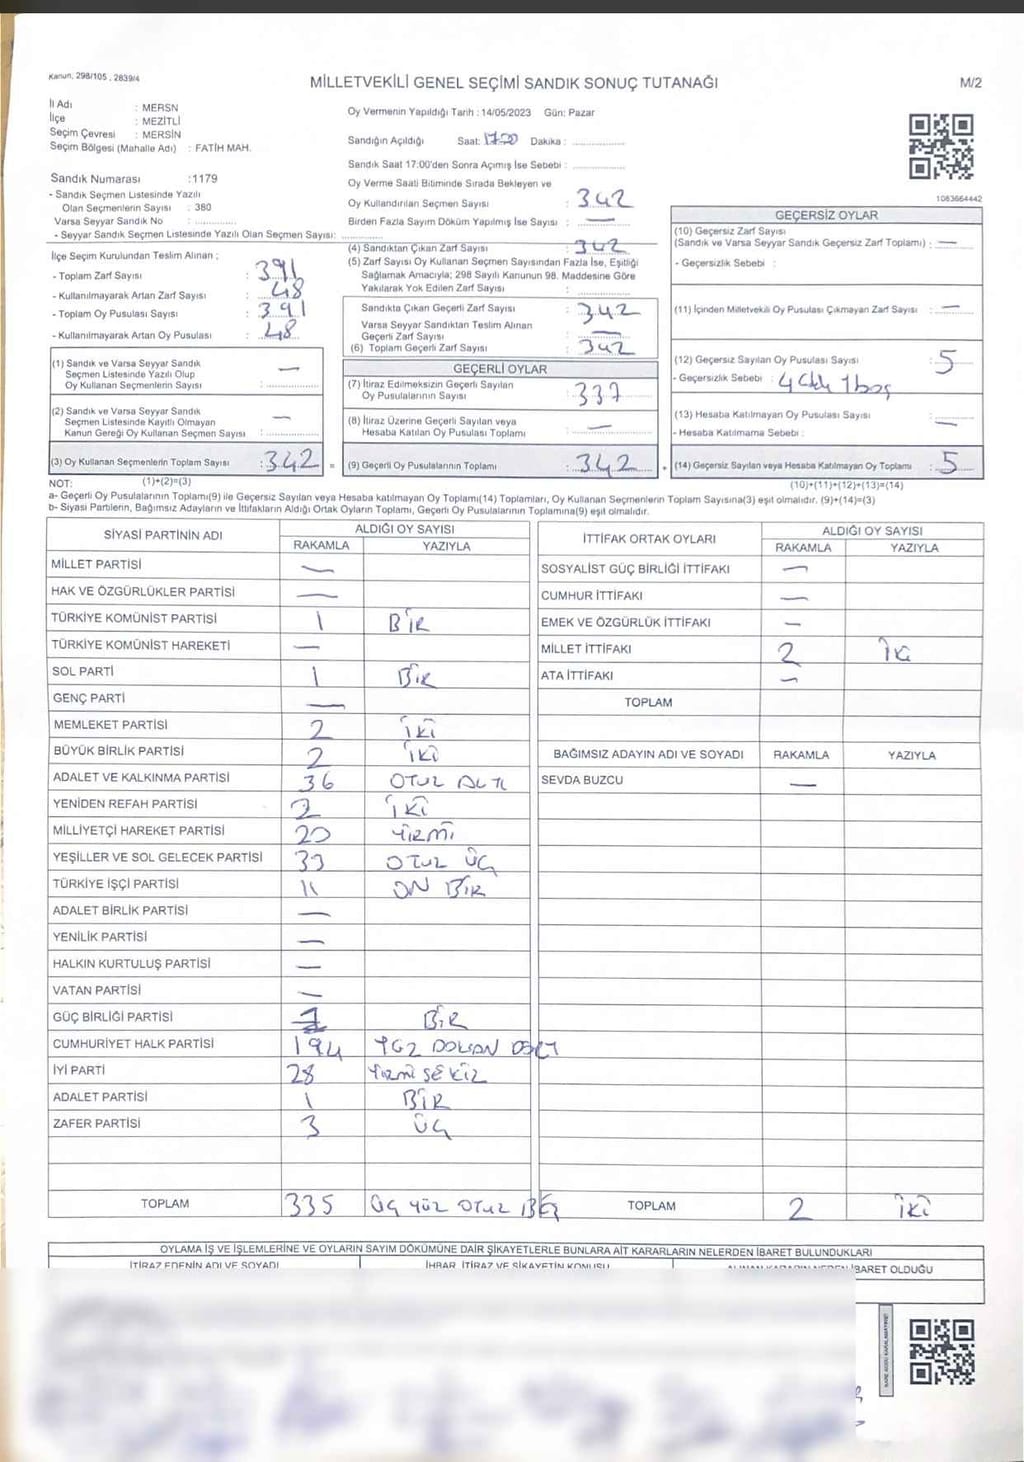 Kanun, 298/105 , 2839/4
MİLLETVEKİLİ GENEL SEÇİMİ SANDIK SONUÇ TUTANAĞI
M/2
İl Adı : MERSN
İlçe : MEZİTLİ
Seçim Çevresi : MERSİN
Seçim Bölgesi (Mahalle Adı) : FATİH MAH.
Sandık Numarası :1179
- Sandık Seçmen Listesinde Yazılı
Olan Seçmenlerin Sayısı : 380
Varsa Seyyar Sandık No :
- Seyyar Sandık Seçmen Listesinde Yazılı Olan Seçmen Sayısı:
Oy Vermenin Yapıldığı Tarih : 14/05/2023 Gün: Pazar
Sandığın Açıldığı Saat: 17:20 Dakika :
Sandık Saat 17:00'den Sonra Açımış İse Sebebi :
Oy Verme Saati Bitiminde Sırada Bekleyen ve
Oy Kullandırılan Seçmen Sayısı : 342
Birden Fazla Sayım Döküm Yapılmış İse Sayısı : —
1083664442
İlçe Seçim Kurulundan Teslim Alınan ;
- Toplam Zarf Sayısı : 391
- Kullanılmayarak Artan Zarf Sayısı : 48
- Toplam Oy Pusulası Sayısı : 391
- Kullanılmayarak Artan Oy Pusulası : 48
(1) Sandık ve Varsa Seyyar Sandık
Seçmen Listesinde Yazılı Olup
Oy Kullanan Seçmenlerin Sayısı : —
(2) Sandık ve Varsa Seyyar Sandık
Seçmen Listesinde Kayıtlı Olmayan
Kanun Gereği Oy Kullanan Seçmen Sayısı : —
(3) Oy Kullanan Seçmenlerin Toplam Sayısı : 342 =
(4) Sandıktan Çıkan Zarf Sayısı : 342
(5) Zarf Sayısı Oy Kullanan Seçmen Sayısından Fazla İse, Eşitliği
Sağlamak Amacıyla; 298 Sayılı Kanunun 98. Maddesine Göre
Yakılarak Yok Edilen Zarf Sayısı :
Sandıkta Çıkan Geçerli Zarf Sayısı : 342
Varsa Seyyar Sandıktan Teslim Alınan
Geçerli Zarf Sayısı : —
(6) Toplam Geçerli Zarf Sayısı : 342
GEÇERLİ OYLAR
(7) İtiraz Edilmeksizin Geçerli Sayılan
Oy Pusulalarının Sayısı : 337
(8) İtiraz Üzerine Geçerli Sayılan veya
Hesaba Katılan Oy Pusulası Toplamı : —
(9) Geçerli Oy Pusulalarının Toplamı : 342 +
GEÇERSİZ OYLAR
(10) Geçersiz Zarf Sayısı
(Sandık ve Varsa Seyyar Sandık Geçersiz Zarf Toplamı) : —
- Geçersizlik Sebebi :
(11) İçinden Milletvekili Oy Pusulası Çıkmayan Zarf Sayısı : —
(12) Geçersiz Sayılan Oy Pusulası Sayısı : 5
- Geçersizlik Sebebi : 4 1 boş
(13) Hesaba Katılmayan Oy Pusulası Sayısı : —
- Hesaba Katılmama Sebebi :
(14) Geçersiz Sayılan veya Hesaba Katılmayan Oy Toplamı : 5
NOT: (1)+(2)=(3)
(10)+(11)+(12)+(13)=(14)
a- Geçerli Oy Pusulalarının Toplamı(9) ile Geçersiz Sayılan veya Hesaba katılmayan Oy Toplamı(14) Toplamları, Oy Kullanan Seçmenlerin Toplam Sayısına(3) eşit olmalıdır. (9)+(14)=(3)
b- Siyasi Partilerin, Bağımsız Adayların ve İttifakların Aldığı Ortak Oyların Toplamı, Geçerli Oy Pusulalarının Toplamına(9) eşit olmalıdır.
SİYASİ PARTİNİN ADI ALDIĞI OY SAYISI
RAKAMLA YAZIYLA
MİLLET PARTİSİ —
HAK VE ÖZGÜRLÜKLER PARTİSİ —
TÜRKİYE KOMÜNİST PARTİSİ 1 BİR
TÜRKİYE KOMÜNİST HAREKETİ —
SOL PARTİ 1 BİR
GENÇ PARTİ —
MEMLEKET PARTİSİ 2 İKİ
BÜYÜK BİRLİK PARTİSİ 2 İKİ
ADALET VE KALKINMA PARTİSİ 36 OTUZ ALTI
YENİDEN REFAH PARTİSİ 2 İKİ
MİLLİYETÇİ HAREKET PARTİSİ 20 YİRMİ
YEŞİLLER VE SOL GELECEK PARTİSİ 33 OTUZ ÜÇ
TÜRKİYE İŞÇİ PARTİSİ 11 ON BİR
ADALET BİRLİK PARTİSİ —
YENİLİK PARTİSİ —
HALKIN KURTULUŞ PARTİSİ —
VATAN PARTİSİ —
GÜÇ BİRLİĞİ PARTİSİ 1 BİR
CUMHURİYET HALK PARTİSİ 194 YÜZ DOKSAN DÖRT
İYİ PARTİ 28 YİRMİ SEKİZ
ADALET PARTİSİ 1 BİR
ZAFER PARTİSİ 3 ÜÇ
TOPLAM 335 ÜÇ YÜZ OTUZ BEŞ
İTTİFAK ORTAK OYLARI ALDIĞI OY SAYISI
RAKAMLA YAZIYLA
SOSYALİST GÜÇ BİRLİĞİ İTTİFAKI —
CUMHUR İTTİFAKI —
EMEK VE ÖZGÜRLÜK İTTİFAKI —
MİLLET İTTİFAKI 2 İKİ
ATA İTTİFAKI —
TOPLAM
BAĞIMSIZ ADAYIN ADI VE SOYADI RAKAMLA YAZIYLA
SEVDA BUZCU —
TOPLAM 2 İKİ
OYLAMA İŞ VE İŞLEMLERİNE VE OYLARIN SAYIM DÖKÜMÜNE DAİR ŞİKAYETLERLE BUNLARA AİT KARARLARIN NELERDEN İBARET BULUNDUKLARI
İTİRAZ EDENİN ADI VE SOYADI İHBAR, İTİRAZ VE ŞİKAYETİN KONUSU İBARET OLDUĞU